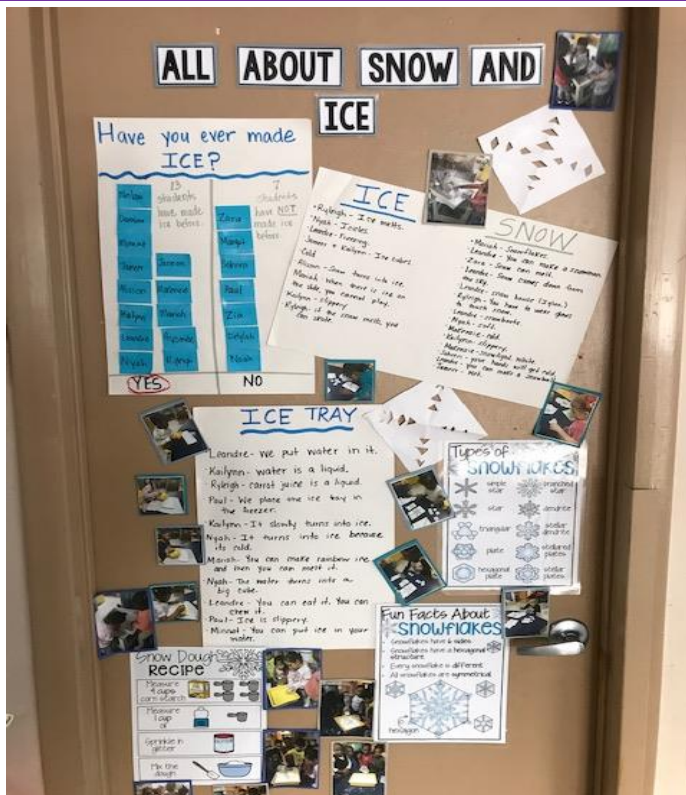 ALL ABOUT SNOW AND
ICE
Have you ever made
ICE?
13
students
have made
ice before.
7
students
have NOT
made ice
before.
Janen
Alison
Kailynn
Leandre
Nyah
Mariah
Zara
Paul
Zia
Noah
YES
NO
ICE
Ryleigh - Ice melts.
Nyah - Icicles.
Leandre - Freezing.
Kailynn - Ice cubes.
Cold
Alison - Snow turns into ice.
Mariah When there is ice on
the slide, you cannot play.
Kailynn - slippery
Ryleigh if the snow melts, you
can skate.
SNOW
Mariah - Snowflakes.
Leandre - You can make a snowman
Zara - Snow can melt.
Leandre - Snow comes down from
the sky.
Leandre - snow house (Igloo)
Ryleigh - You have to wear gloves
to touch snow.
Leandre - snowboots.
Nyah - soft.
Makenzie - cold.
Kailynn - slippery.
Makenzie - snowlight, white.
your hands will get cold
Leandre - you can make a snowball
ICE TRAY
Leandre - We put water in it.
Kailynn - water is a liquid.
Ryleigh - carrot juice is a liquid.
Paul - We place the ice tray in
the freezer.
Kailynn - It slowly turns into ice.
Nyah - It turns into ice because
its cold.
Mariah - You can make rainbow ice
and then you can melt it.
Nyah - The water turns into a
big cube.
Leandre - You can eat it. You can
chew it.
Paul - Ice is slippery.
You can put ice in your
water.
Types of
SNOWFLAKES
simple
star
branched
star
star
dendrite
triangular
stellar
dendrite
plate
stellared
plates
hexagonal
plate
stellar
plates
Fun Facts About
SNOWFLAKES
Snowflakes have 6 sides
Snowflakes have a hexagonal
structure
Every snowflake is different
All snowflakes are symmetrical
hexagon
Snow Dough
RECIPE
Measure
4 cups
corn starch
Measure
1 cup
oil
Sprinkle in
glitter
Mix the
dough